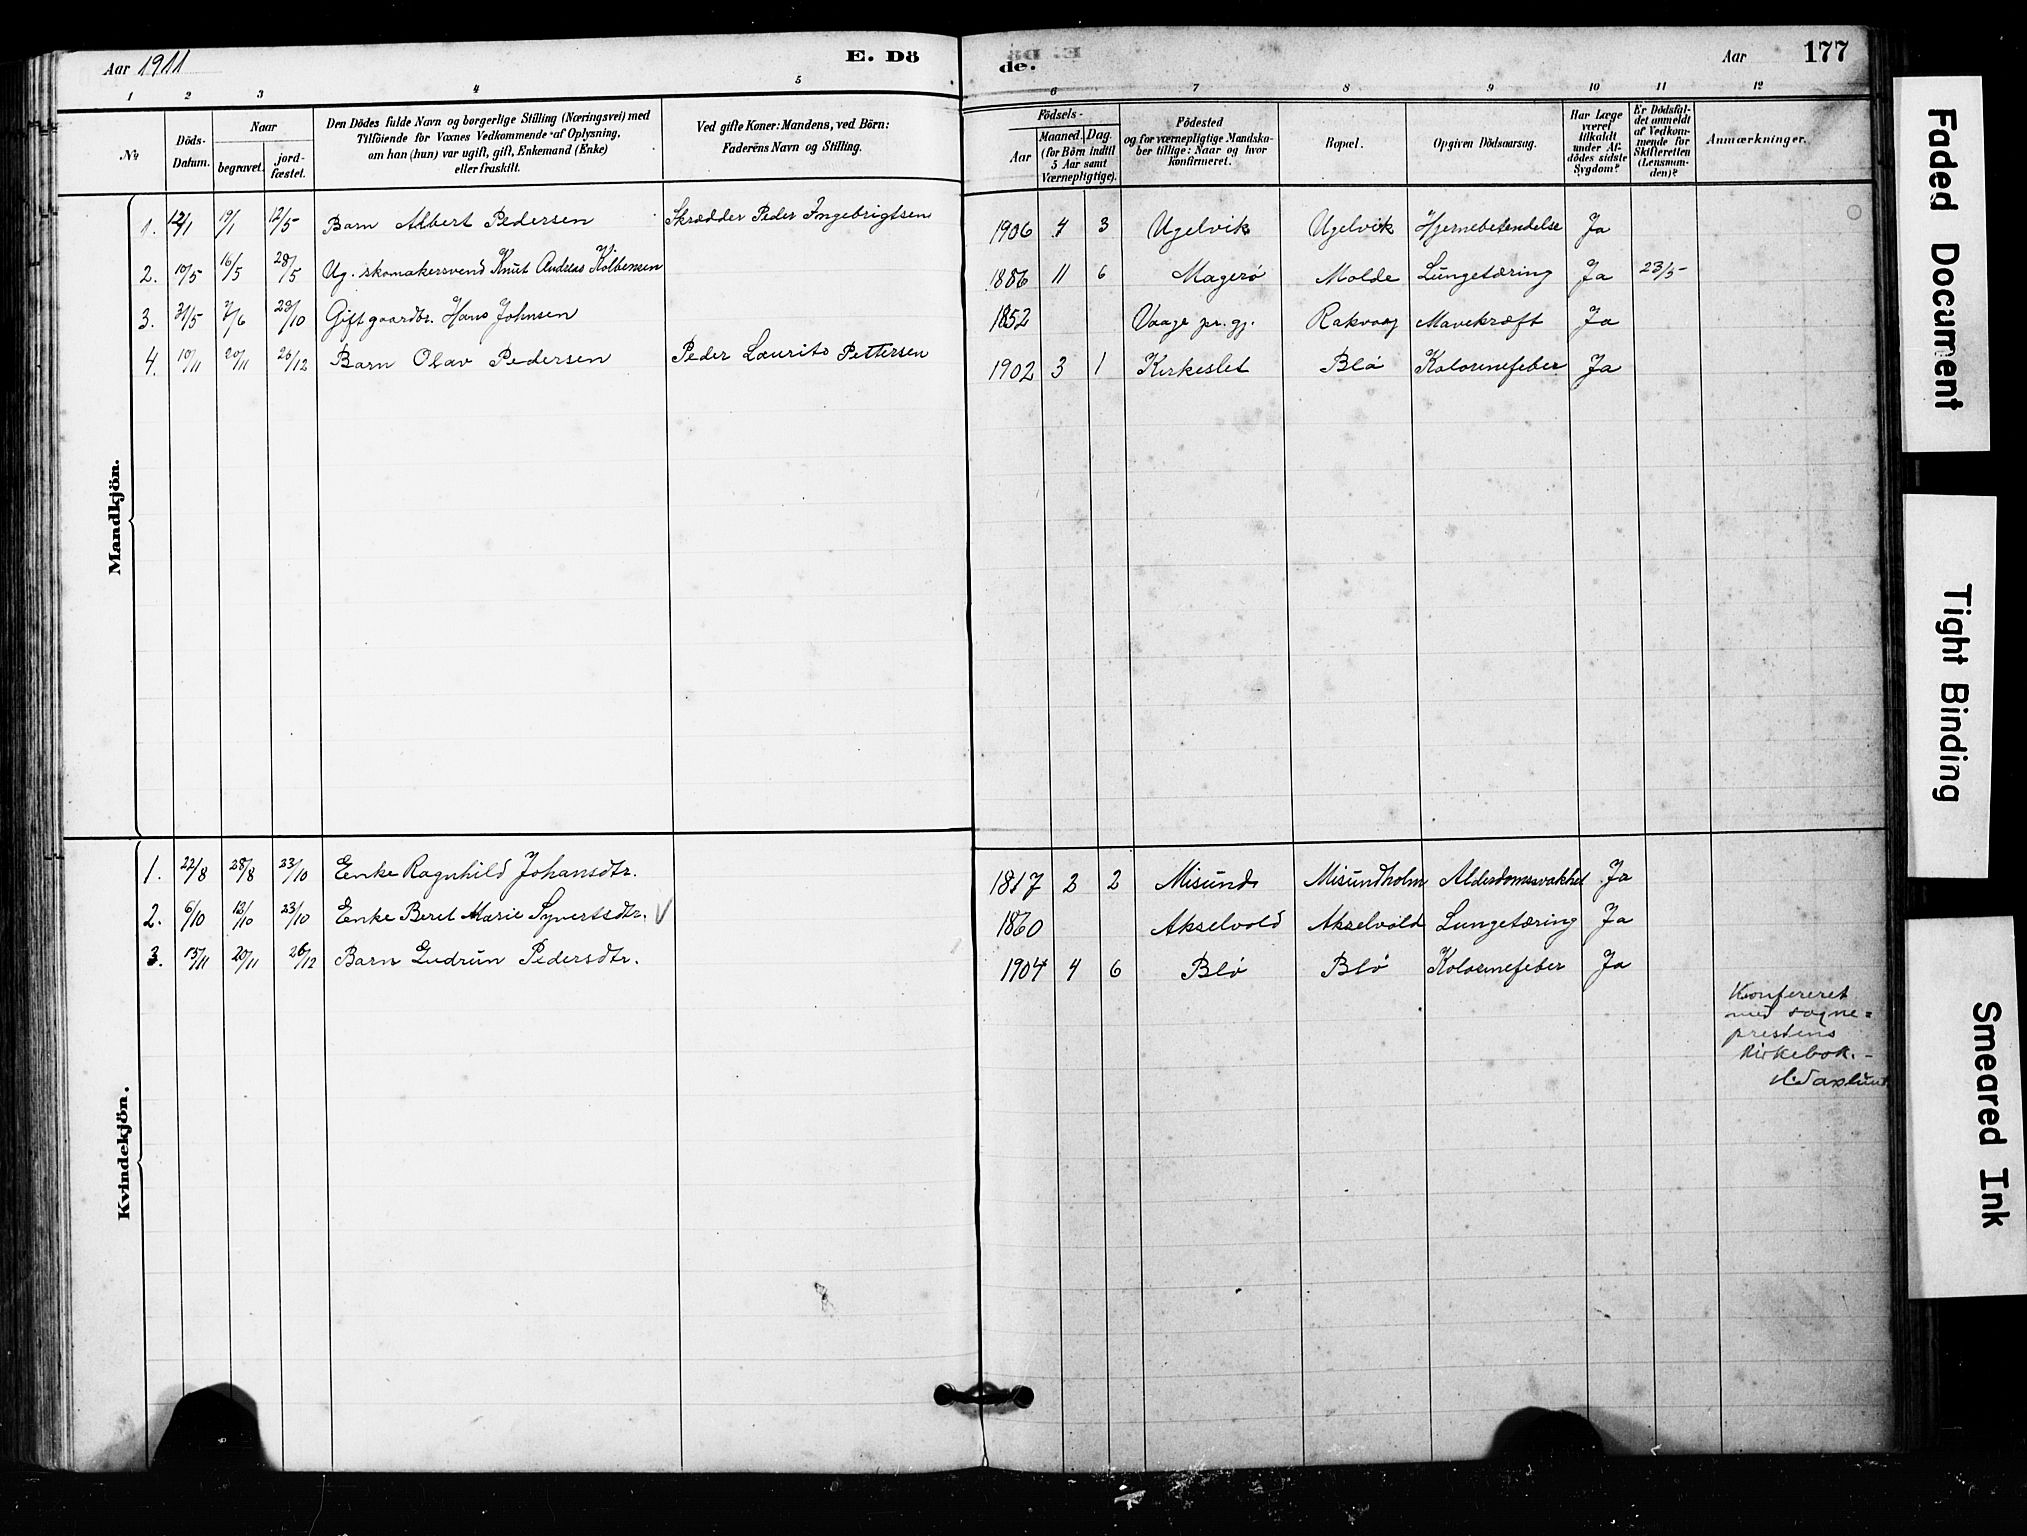 Aar 1911
E. Dö
de.
Aar
177
1 2 3 4 5 6 7 8 9 10 11 12
№
Döds-Datum.
Naar
begravet.
jord-fæstet.
Den Dödes fulde Navn og borgerlige Stilling (Næringsvei) med
Tilföiende for Voxnes Vedkommende af Oplysning,
om han (hun) var ugift, gift, Enkemand (Enke)
eller fraskilt.
Ved gifte Koner: Mandens, ved Börn:
Faderens Navn og Stilling.
Födsels-
Aar
Maaned. Dag.
(for Börn indtil
5 Aar samt
Værnepligtige).
Födested
og for værnepligtige Mandska-
ber tillige: Naar og hvor
konfirmeret.
Bopæl.
Opgiven Dödsaarsag.
Har Læge
været
tilkaldt
under Af-
dödes sidste
Sygdom?
Er Dödsfal-
det anmeldt
af Vedkom-
mende for
Skifteretten
(Lensman-
den)?
Anmærkninger.
Mandkjön.
1. 12/1 19/1 12/5 Barn Albert Pedersen Skrædder Peder Ingebrigtsen 1906 4 3 Ugelvik Ugelvik Hjernebetendelse Ja
2. 10/5 16/5 28/5 Ug. skomakersvend Knut Andreas K. Kolbensen 1886 11 6 Magerø Molde Lungetæring Ja 23/5
3. 31/5 7/6 29/10 Gift gaardbr. Hans Johnsen 1852 Vaage pr. gj. Rakvaag Mavekræft Ja
4. 10/11 20/11 26/12 Barn Olav Pedersen Peder Laurits Pettersen 1902 3 1 Kirkeslet Blø Kolorinefeber Ja
Kvindekjön.
1. 22/8 28/8 23/10 Enke Ragnhild Johansdtr. 1817 2 2 Misund Misundholm Alderdomssvakhet Ja
2. 6/10 12/10 23/10 Enke Beret Marie Syvertsdtr. V 1860 Akselvold Akselvold Lungetæring Ja
3. 15/11 20/11 26/12 Barn Gudrun Pedersdtr. 1904 4 6 Blø Blø Kolorinefeber Ja
Konfereret
med sogne=
prestens
kirkebok. -
Faded Document
Tight Binding
Smeared Ink